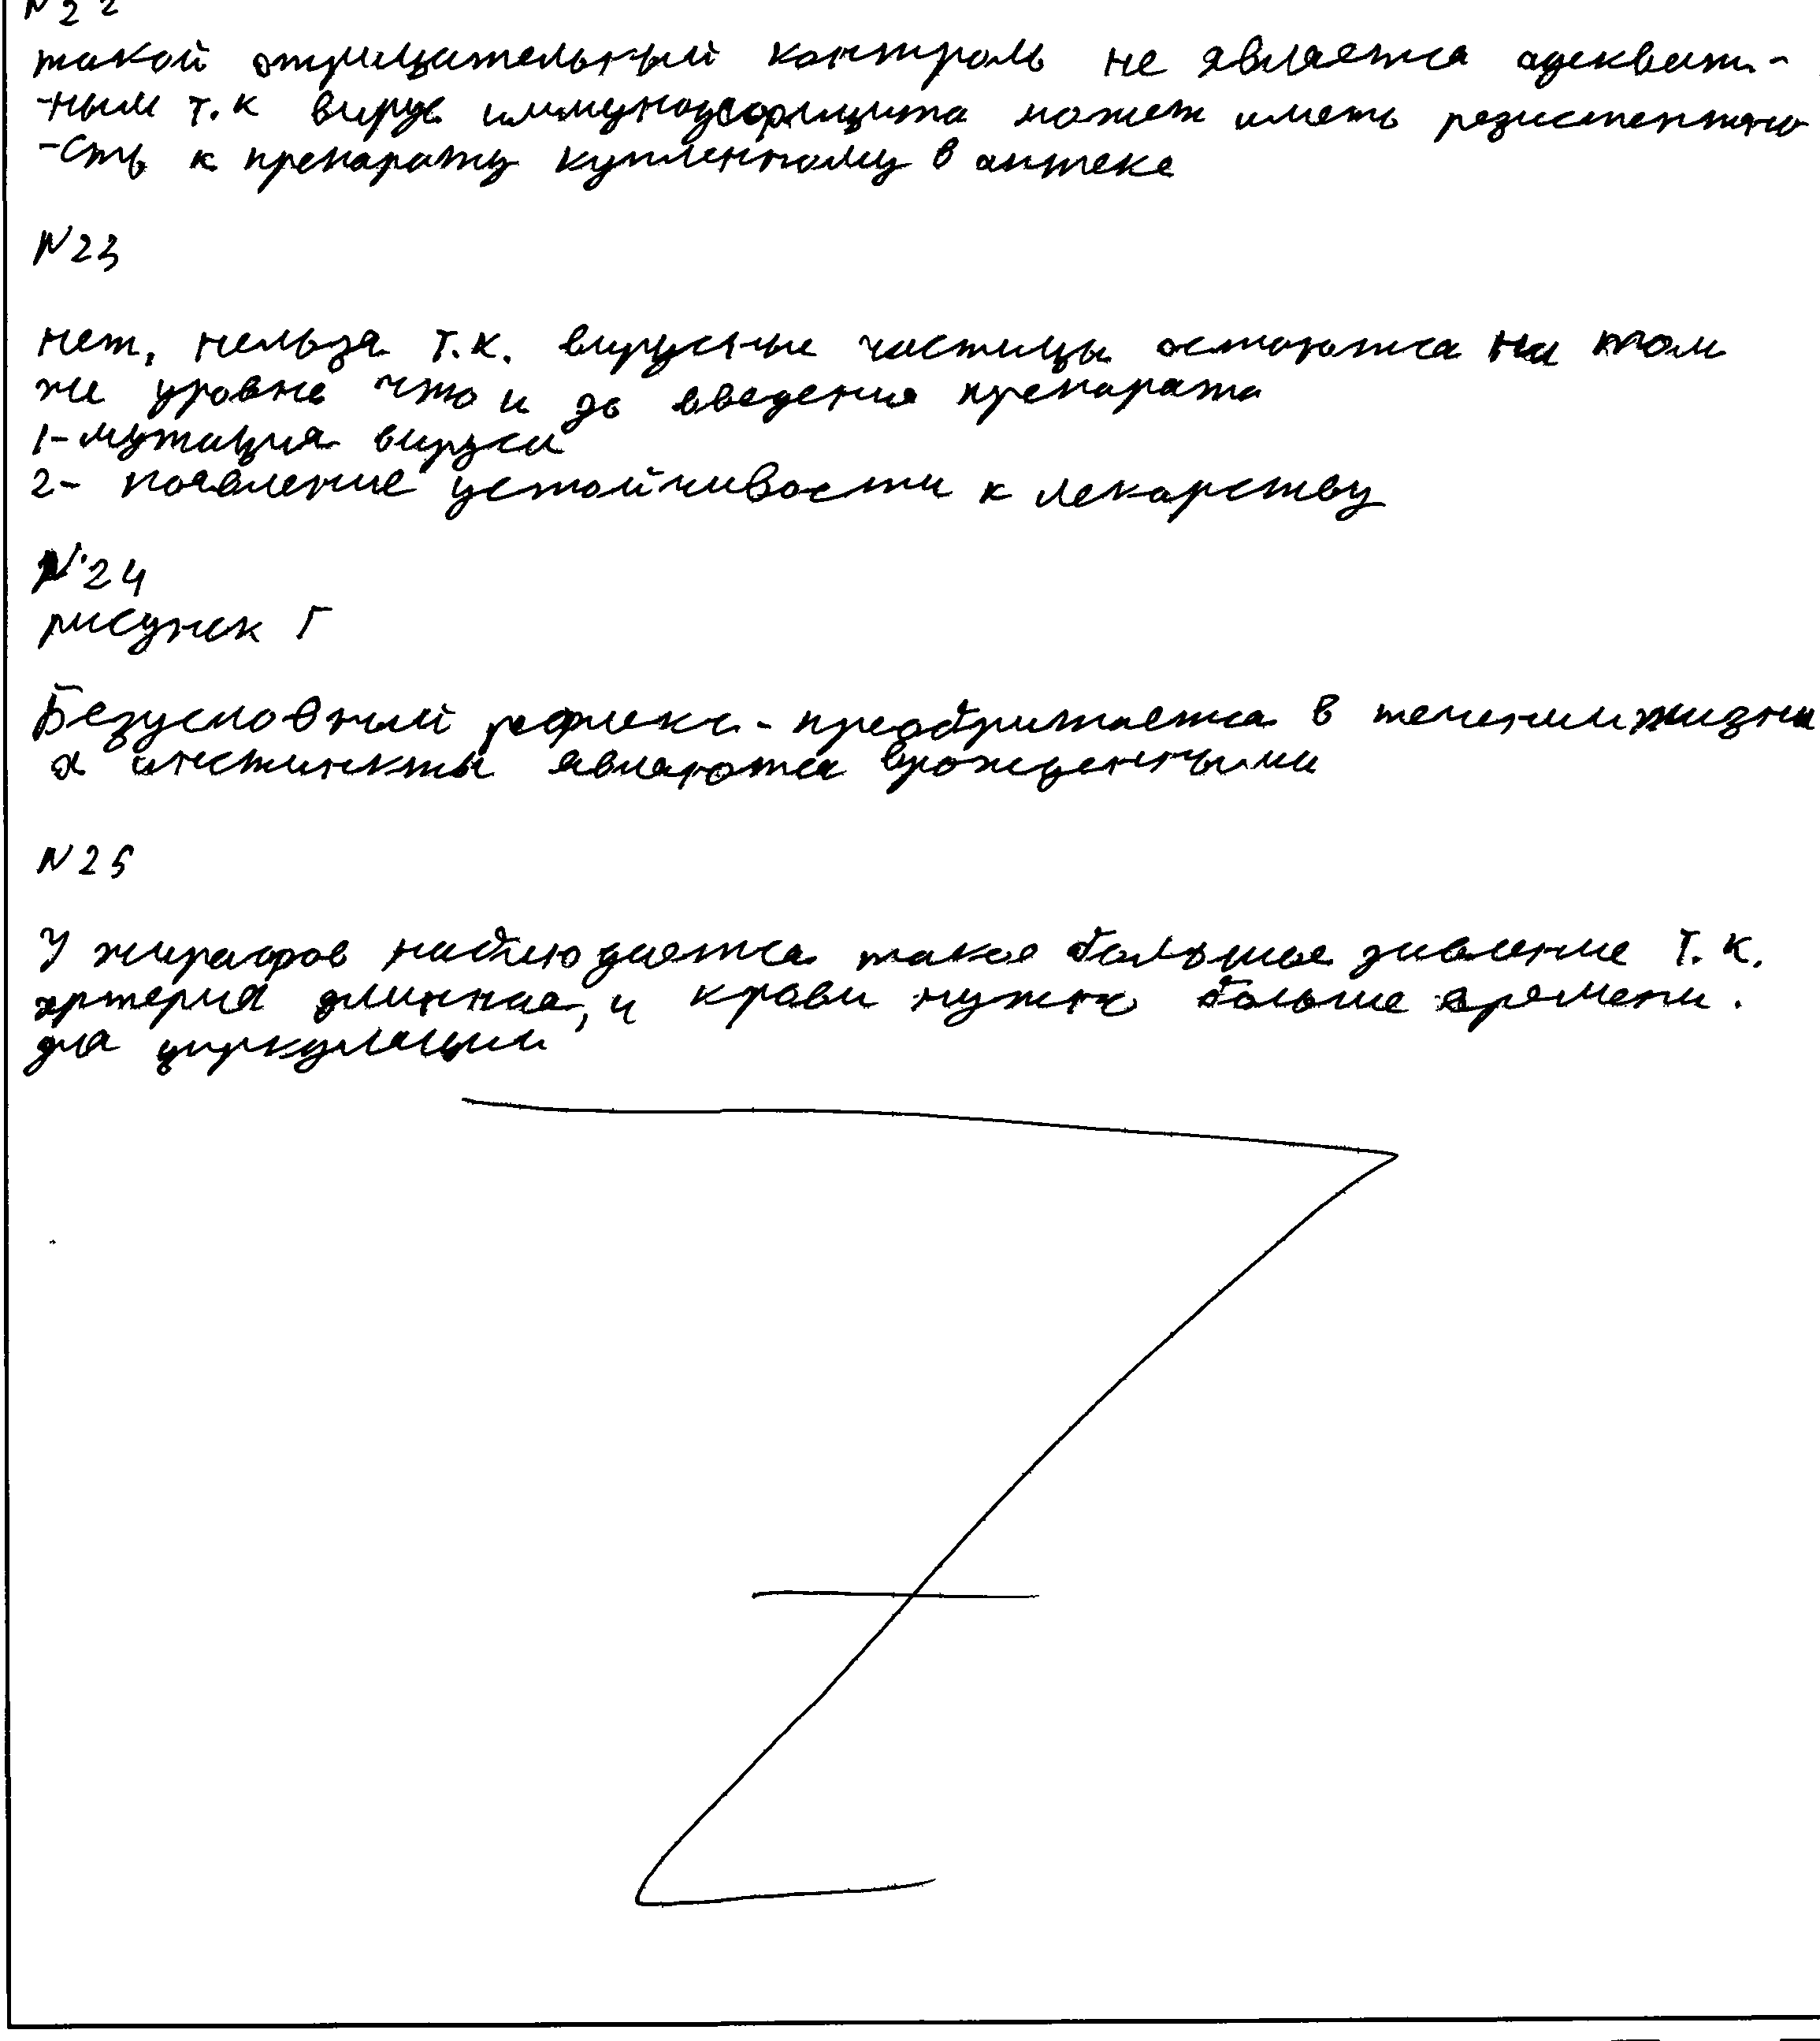 N22
такой отрицательный контроль не является адекват-
-ным т.к вирус иммунодефицита может иметь резистентно
-сть к препарату купленному в аптеке
N23
нет, нельзя т.к. вирусные частицы остаются на том
же уровне что и до введения препарата
1-мутация вируса
2- появление устойчивости к лекарству
N24
рисунок Г
Безусловный рефлекс - преобритается в течении жизни
а инстинкты являются врожденными
N25
У жирафов наблюдается такое большое давление т.к.
артерия длинная, и крови нужно больше времени.
для циркуляции